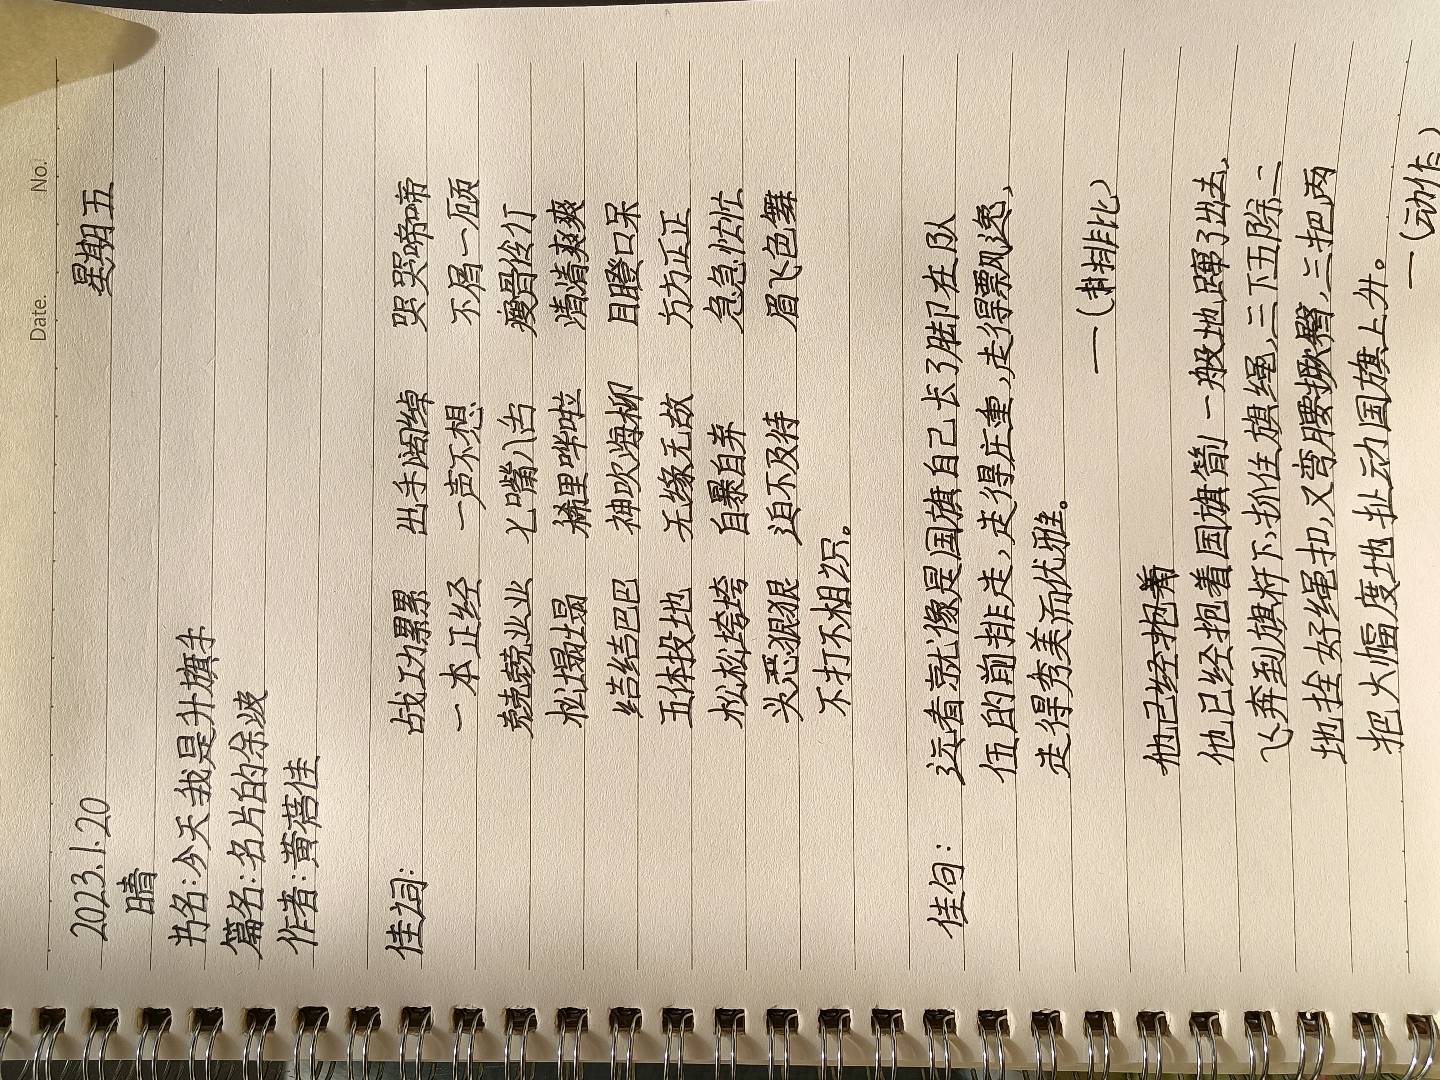 No.
Date.
2023.1.20 星期五
晴
书名:今天我是升旗手
篇名:名片的余波
作者:黄蓓佳
佳词:
战功累累 出手阔绰 哭哭啼啼
一本正经 一声不想 不屑一顾
兢兢业业 七嘴八舌 瘦骨伶仃
松松塌塌 稀里哗啦 清清爽爽
结结巴巴 神吹海柳 目瞪口呆
五体投地 无缘无故 方方正正
松松垮垮 自暴自弃 急急忙忙
尖恶狠狠 迫不及待 眉飞色舞
不打不相识。
佳句:
远看就像是国旗自己长了脚在队
伍的前排走,走得庄重,走得飘逸,
走得秀美而优雅。
—(排比)
他已经抱着
他已经抱着国旗箭一般地蹿了出去,
飞奔到旗杆下,抓住旗绳,三下五除二
地拴好绳扣,又弯腰撅臀,三把两
把大幅度地扯动国旗上升。
—(动作)